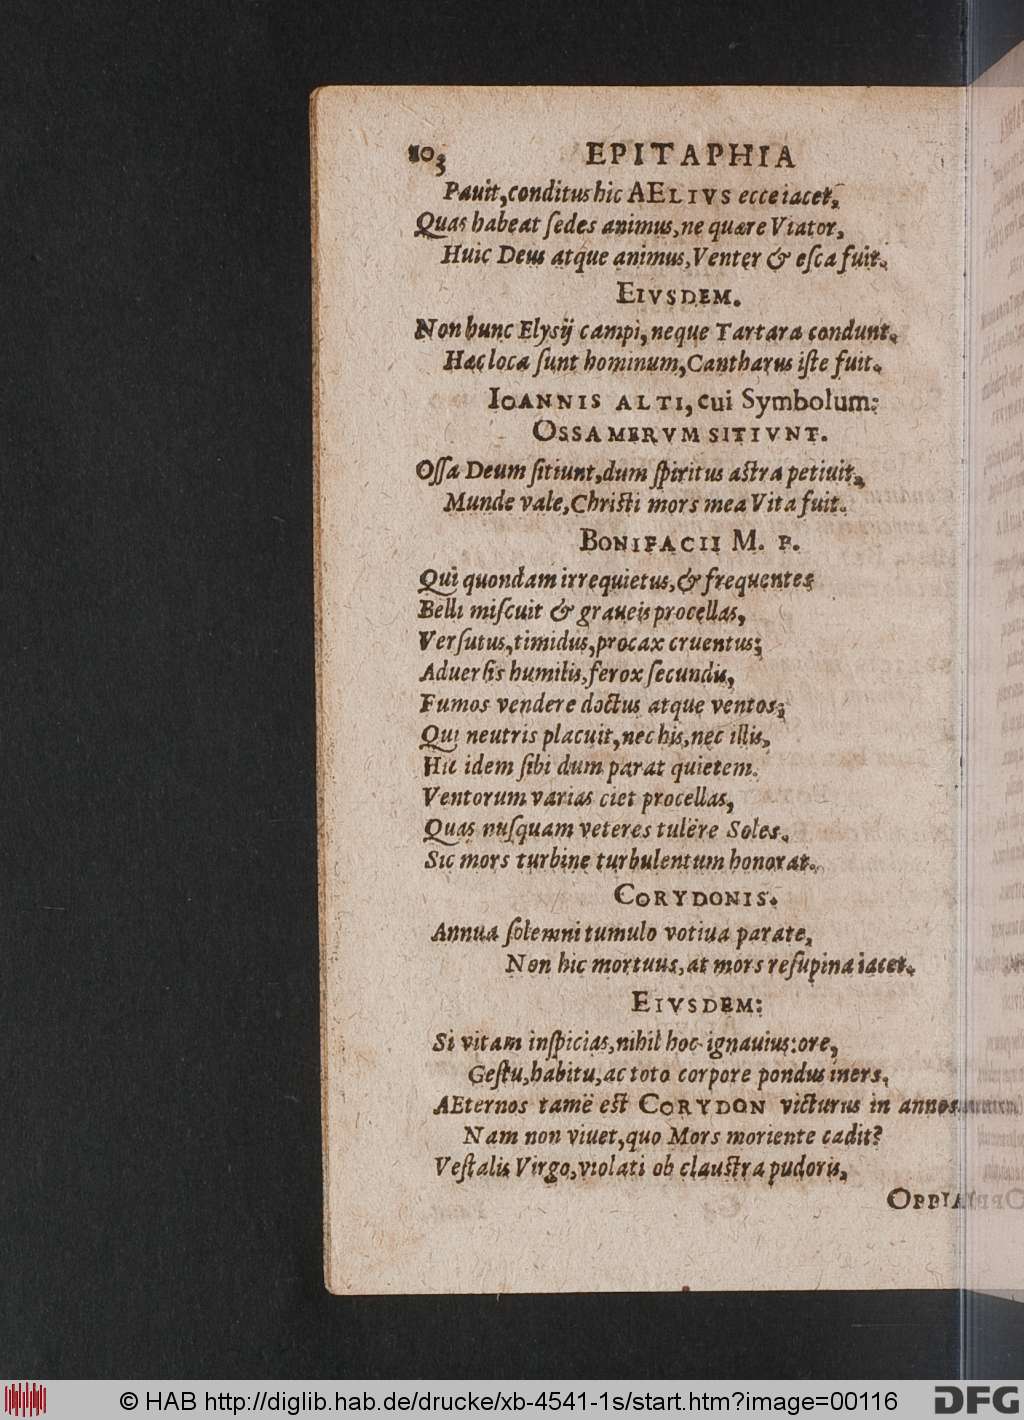 103 EPITAPHIA
Pauit, conditus hic AELIVS ecce iacet,
Quas habeat ſedes animus, ne quære Viator,
Huic Deus atque animus, Venter & eſca fuit.
EIVSDEM.
Non hunc Elysij campi, neque Tartara condunt.
Hæc loca ſunt hominum, Cantharus iſte fuit.
IOANNIS ALTI, cui Symbolum:
OSSA MERVM SITIVNT.
Oſſa Deum ſitiunt, dum ſpiritus aſtra petiuit,
Munde vale, Chriſti mors mea Vita fuit.
BONIFACII M. P.
Qui quondam irrequietus, & frequentes
Belli miſcuit & graueis procellas,
Verſutus, timidus, procax cruentus;
Aduerſis humilis, ferox ſecundis,
Fumos vendere doctus atque ventos;
Qui neutris placuit, nec his, nec illis,
Hic idem ſibi dum parat quietem.
Ventorum varias ciet procellas,
Quas nuſquam veteres tulêre Soles.
Sic mors turbine turbulentum honorat.
CORYDONIS.
Annua ſolemni tumulo votiua parate,
Non hic mortuus, at mors reſupina iacet.
EIVSDEM:
Si vitam inſpicias, nihil hoc ignauius: ore,
Geſtu, habitu, ac toto corpore pondus iners.
AEternos tamē eſt CORYDON victurus in annos
Nam non viuet, quo Mors moriente cadit?
Veſtalis Virgo, violati ob clauſtra pudoris,
OPPIA
© HAB http://diglib.hab.de/drucke/xb-4541-1s/start.htm?image=00116
DFG